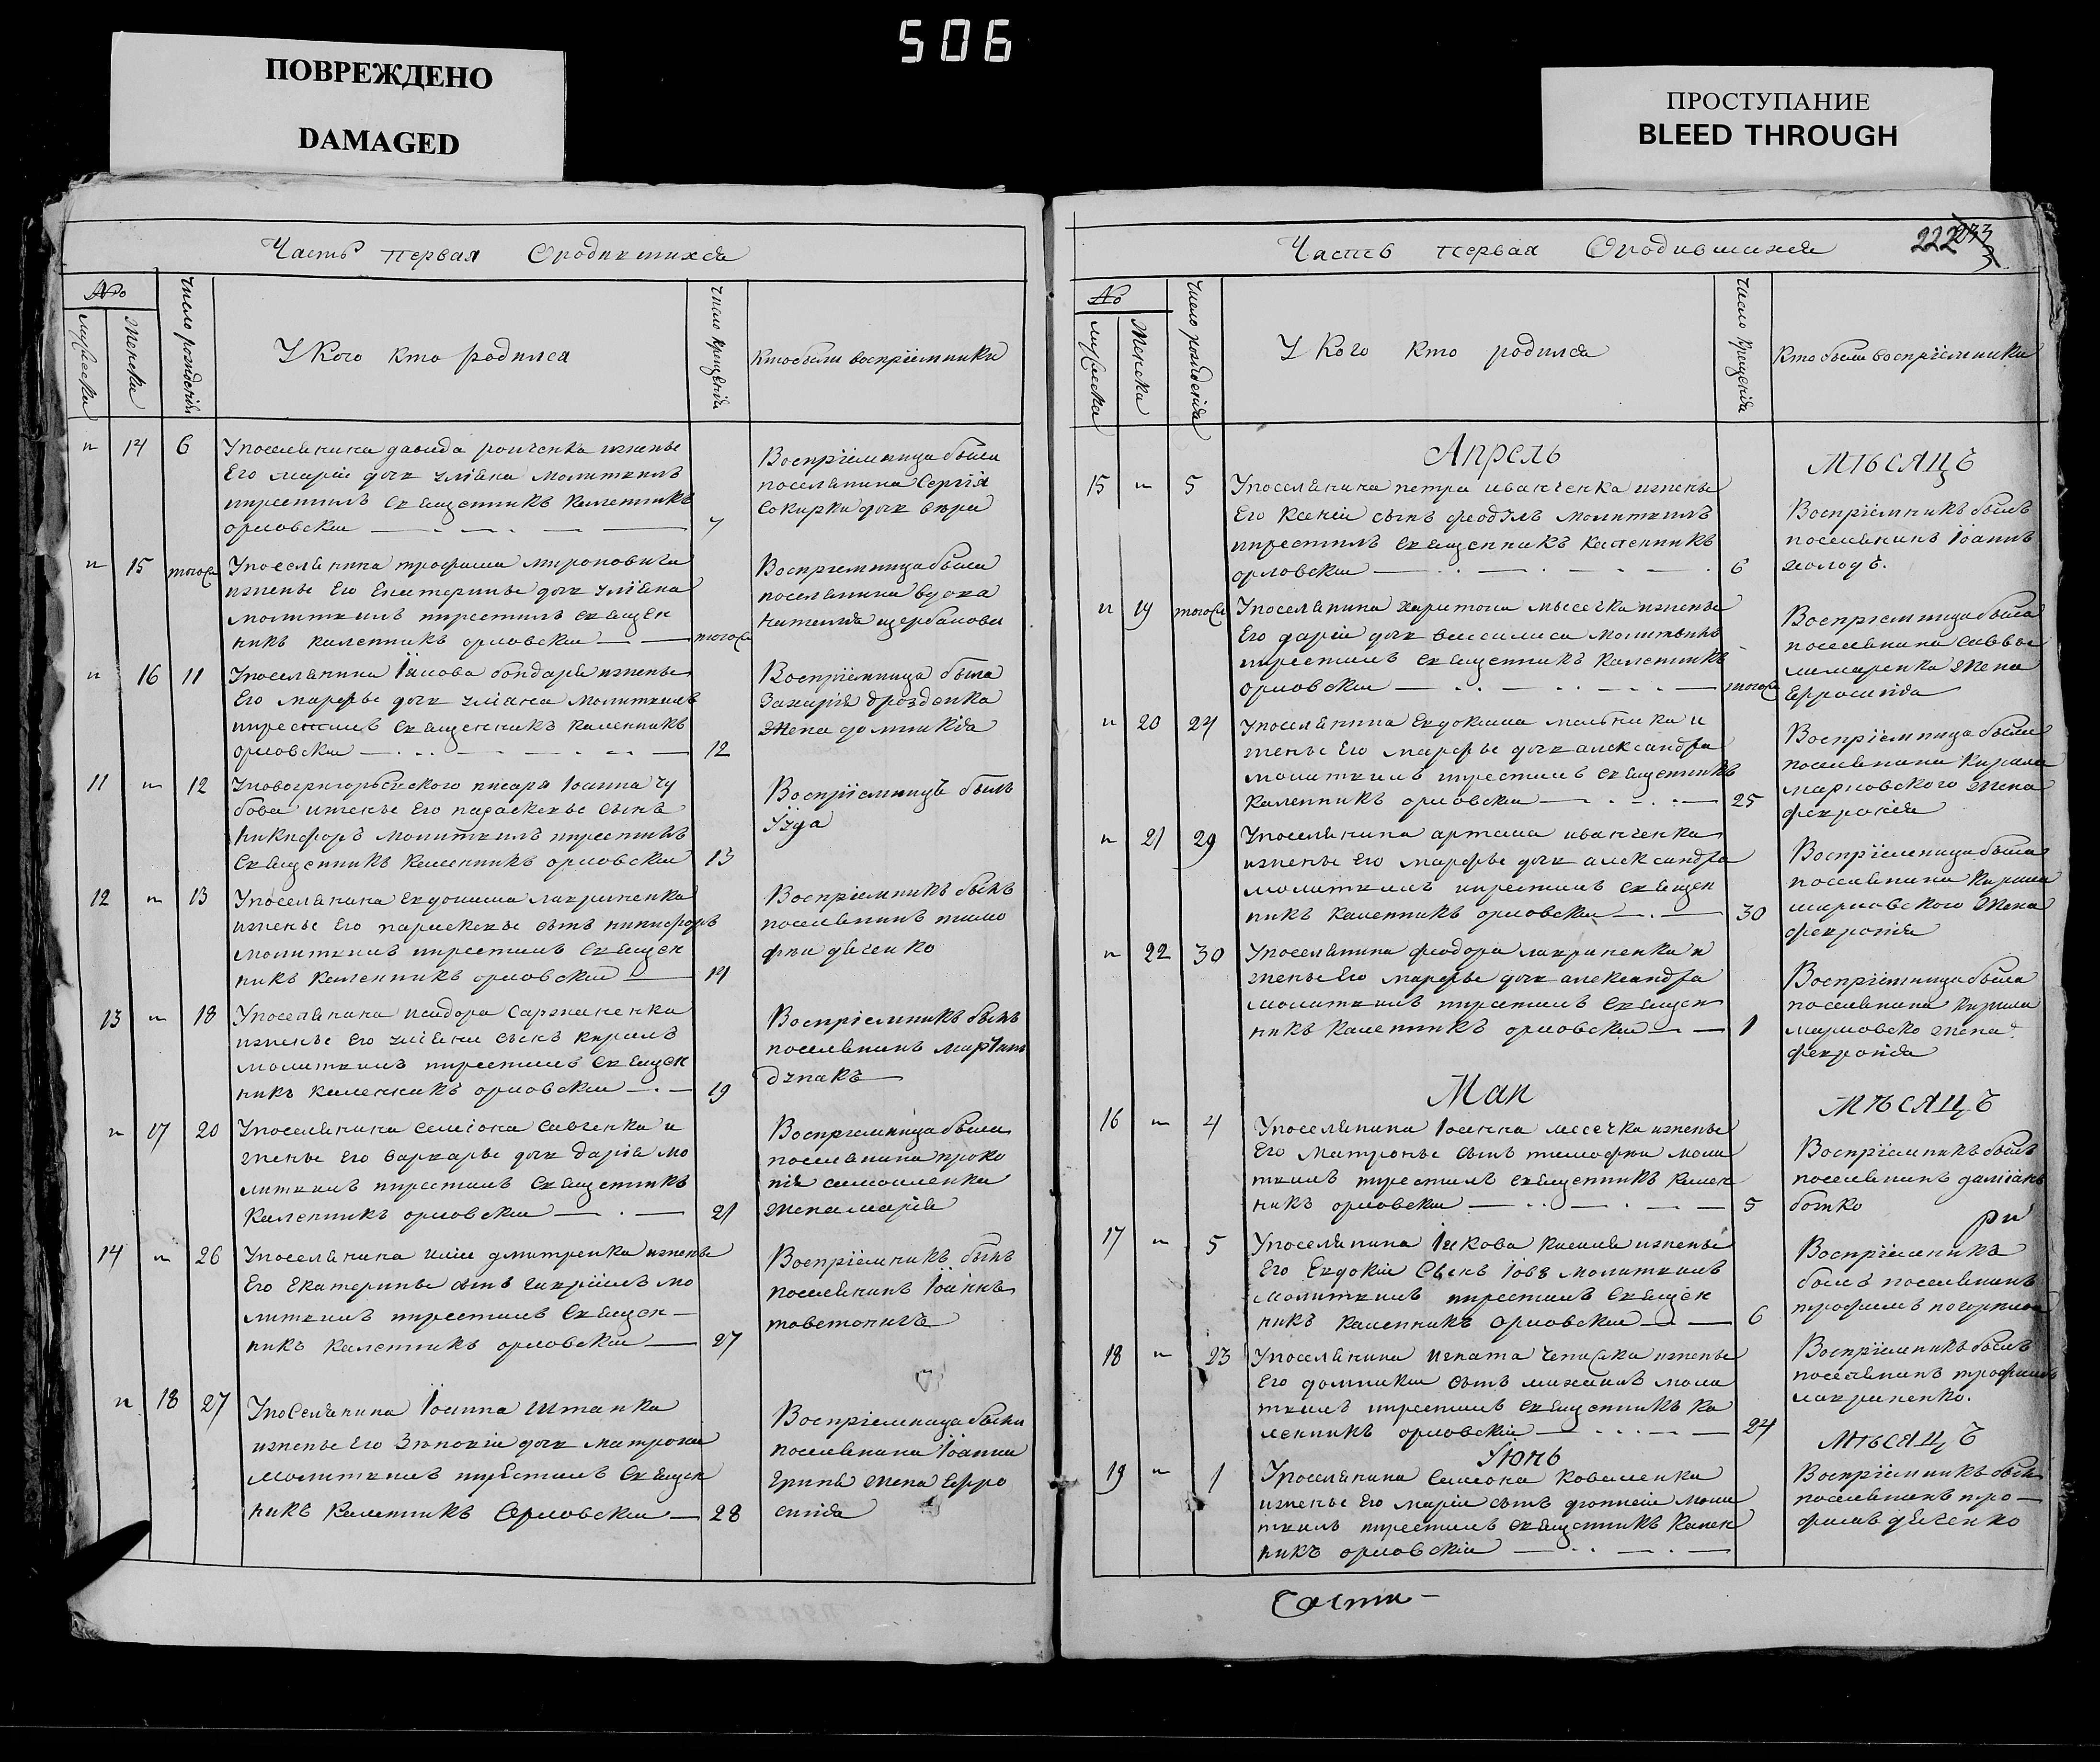 506
ПОВРЕЖДЕНО
DAMAGED
ПРОСТУПАНИЕ
BLEED THROUGH
Часть первая Ородившихся
№
мужеска
Женска
Число рождения
У Кого кто родился
Число крещения
Кто были восприемники
14 6 У поселянина давида
его марии дочь улиана молитвилъ
икрестилъ священникъ Каленникъ
орловски 7
Восприемница была
поселянина Сергія
Сокирки дочь
15 тогоже У поселянина трофима мироновича
ижены его Екатерины дочь улиана
молитвилъ икрестилъ священ
никъ каленникъ орловски тогоже
Восприемница была
поселянина
щербакова
16 11 У поселянина Іакова бондаря ижены
его марфы дочь улиана молитвилъ
икрестилъ священникъ каленникъ
орловски 12
Восприемница была
Захарія дрозденка
Жена домникія
11 12 У новогригорьевского писаря Іоанна чу
бова ижены его параскевы сынъ
никифоръ молитвилъ икрестилъ
священникъ каленникъ орловски 13
Восприемницъ былъ
12 13 У поселянина евдокима лавриненка
ижены его параскевы сынъ никифоръ
молитвилъ икрестилъ священ
никъ каленникъ орловски 14
Восприемникъ былъ
поселянинъ тимо
фей дяченко
13 18 У поселянина исидора
ижены его улияни сынъ кирилъ
молитвилъ икрестилъ священ
никъ каленникъ орловски 19
Восприемникъ былъ
поселянинъ мартинъ
17 20 У поселянина семіона савченка и
жены его варвары дочь дарія мо
литвилъ икрестилъ священникъ
Каленникъ орловски 21
Восприемница была
поселянина проко
пія самойленка
жена марія
14 26 У поселянина иліи дмитренка ижены
его екатерины сынъ гавріилъ мо
литвилъ икрестилъ священ
никъ каленникъ орловски 27
Восприемникъ былъ
поселянинъ Іоаннъ
18 27 У поселянина Іоанна штанка
ижены его Зиновіи дочь матрона
молитвилъ икрестилъ священ
никъ каленникъ Орловски 28
Восприемница была
поселянина Іоанна
жена Ефро
синія
Часть первая Ородившихся
222 233
№
мужеска
Женска
Число рождения
У Кого кто родился
Число крещения
Кто были восприемники
Апрель МѢСЯЦЪ
15 5 У поселянина петра иванченка ижены
его Ксеніи сынъ феодулъ молитвилъ
икрестилъ священникъ каленникъ
орловски 6
Восприемникъ былъ
поселянинъ Іоаннъ
холодъ.
19 тогоже У поселянина харитона мысечка ижены
его даріи дочь василиса молитвилъ
икрестилъ священникъ каленникъ
орловски тогоже
Восприемница была
поселянина саввы
лимаренка жена
Ефросинія
20 24 У поселянина евдокима мельника и
жены его марфы дочь александра
молитвилъ икрестилъ священникъ
каленникъ орловски 25
Восприемница была
поселянина Кирила
марковского жена
февронія
21 29 У поселянина артема иванченка
ижены его марфы дочь александра
молитвилъ икрестилъ священ
никъ каленникъ орловски 30
Восприемница была
поселянина Кирила
марковского жена
февронія
22 30 У поселянина феодора лавриненка и
жены его марфы дочь александра
молитвилъ икрестилъ священ
никъ каленникъ орловски 1
Восприемница была
поселянина кирила
марковско жена
февронія
Маи МѢСЯЦЪ
16 4 У поселянина Іоанна месечка ижены
его Матроны сынъ тимофеи моли
твилъ икрестилъ священникъ кален
никъ орловски 5
Восприемникъ былъ
поселянинъ даміанъ
ботко
17 5 У поселянина Іакова ижены
его Евдокіи Сынъ Іовъ молитвилъ
икрестилъ священ
никъ каленникъ орловски 6
Восприемникъ
былъ поселянинъ
трофимъ
18 23 У поселянина Игната ижены
его домники сынъ михаилъ моли
твилъ икрестилъ священникъ ка
ленникъ орловскіи 24
Восприемникъ былъ
поселянинъ трофимъ
лавриненко.
Июнь МѢСЯЦЪ
19 1 У поселянина Семиона Коваленка
ижены его маріи сынъ моли
твилъ икрестилъ священникъ Кален
никъ орловскіи
Восприемникъ былъ
поселянинъ тро
фимъ дяченко